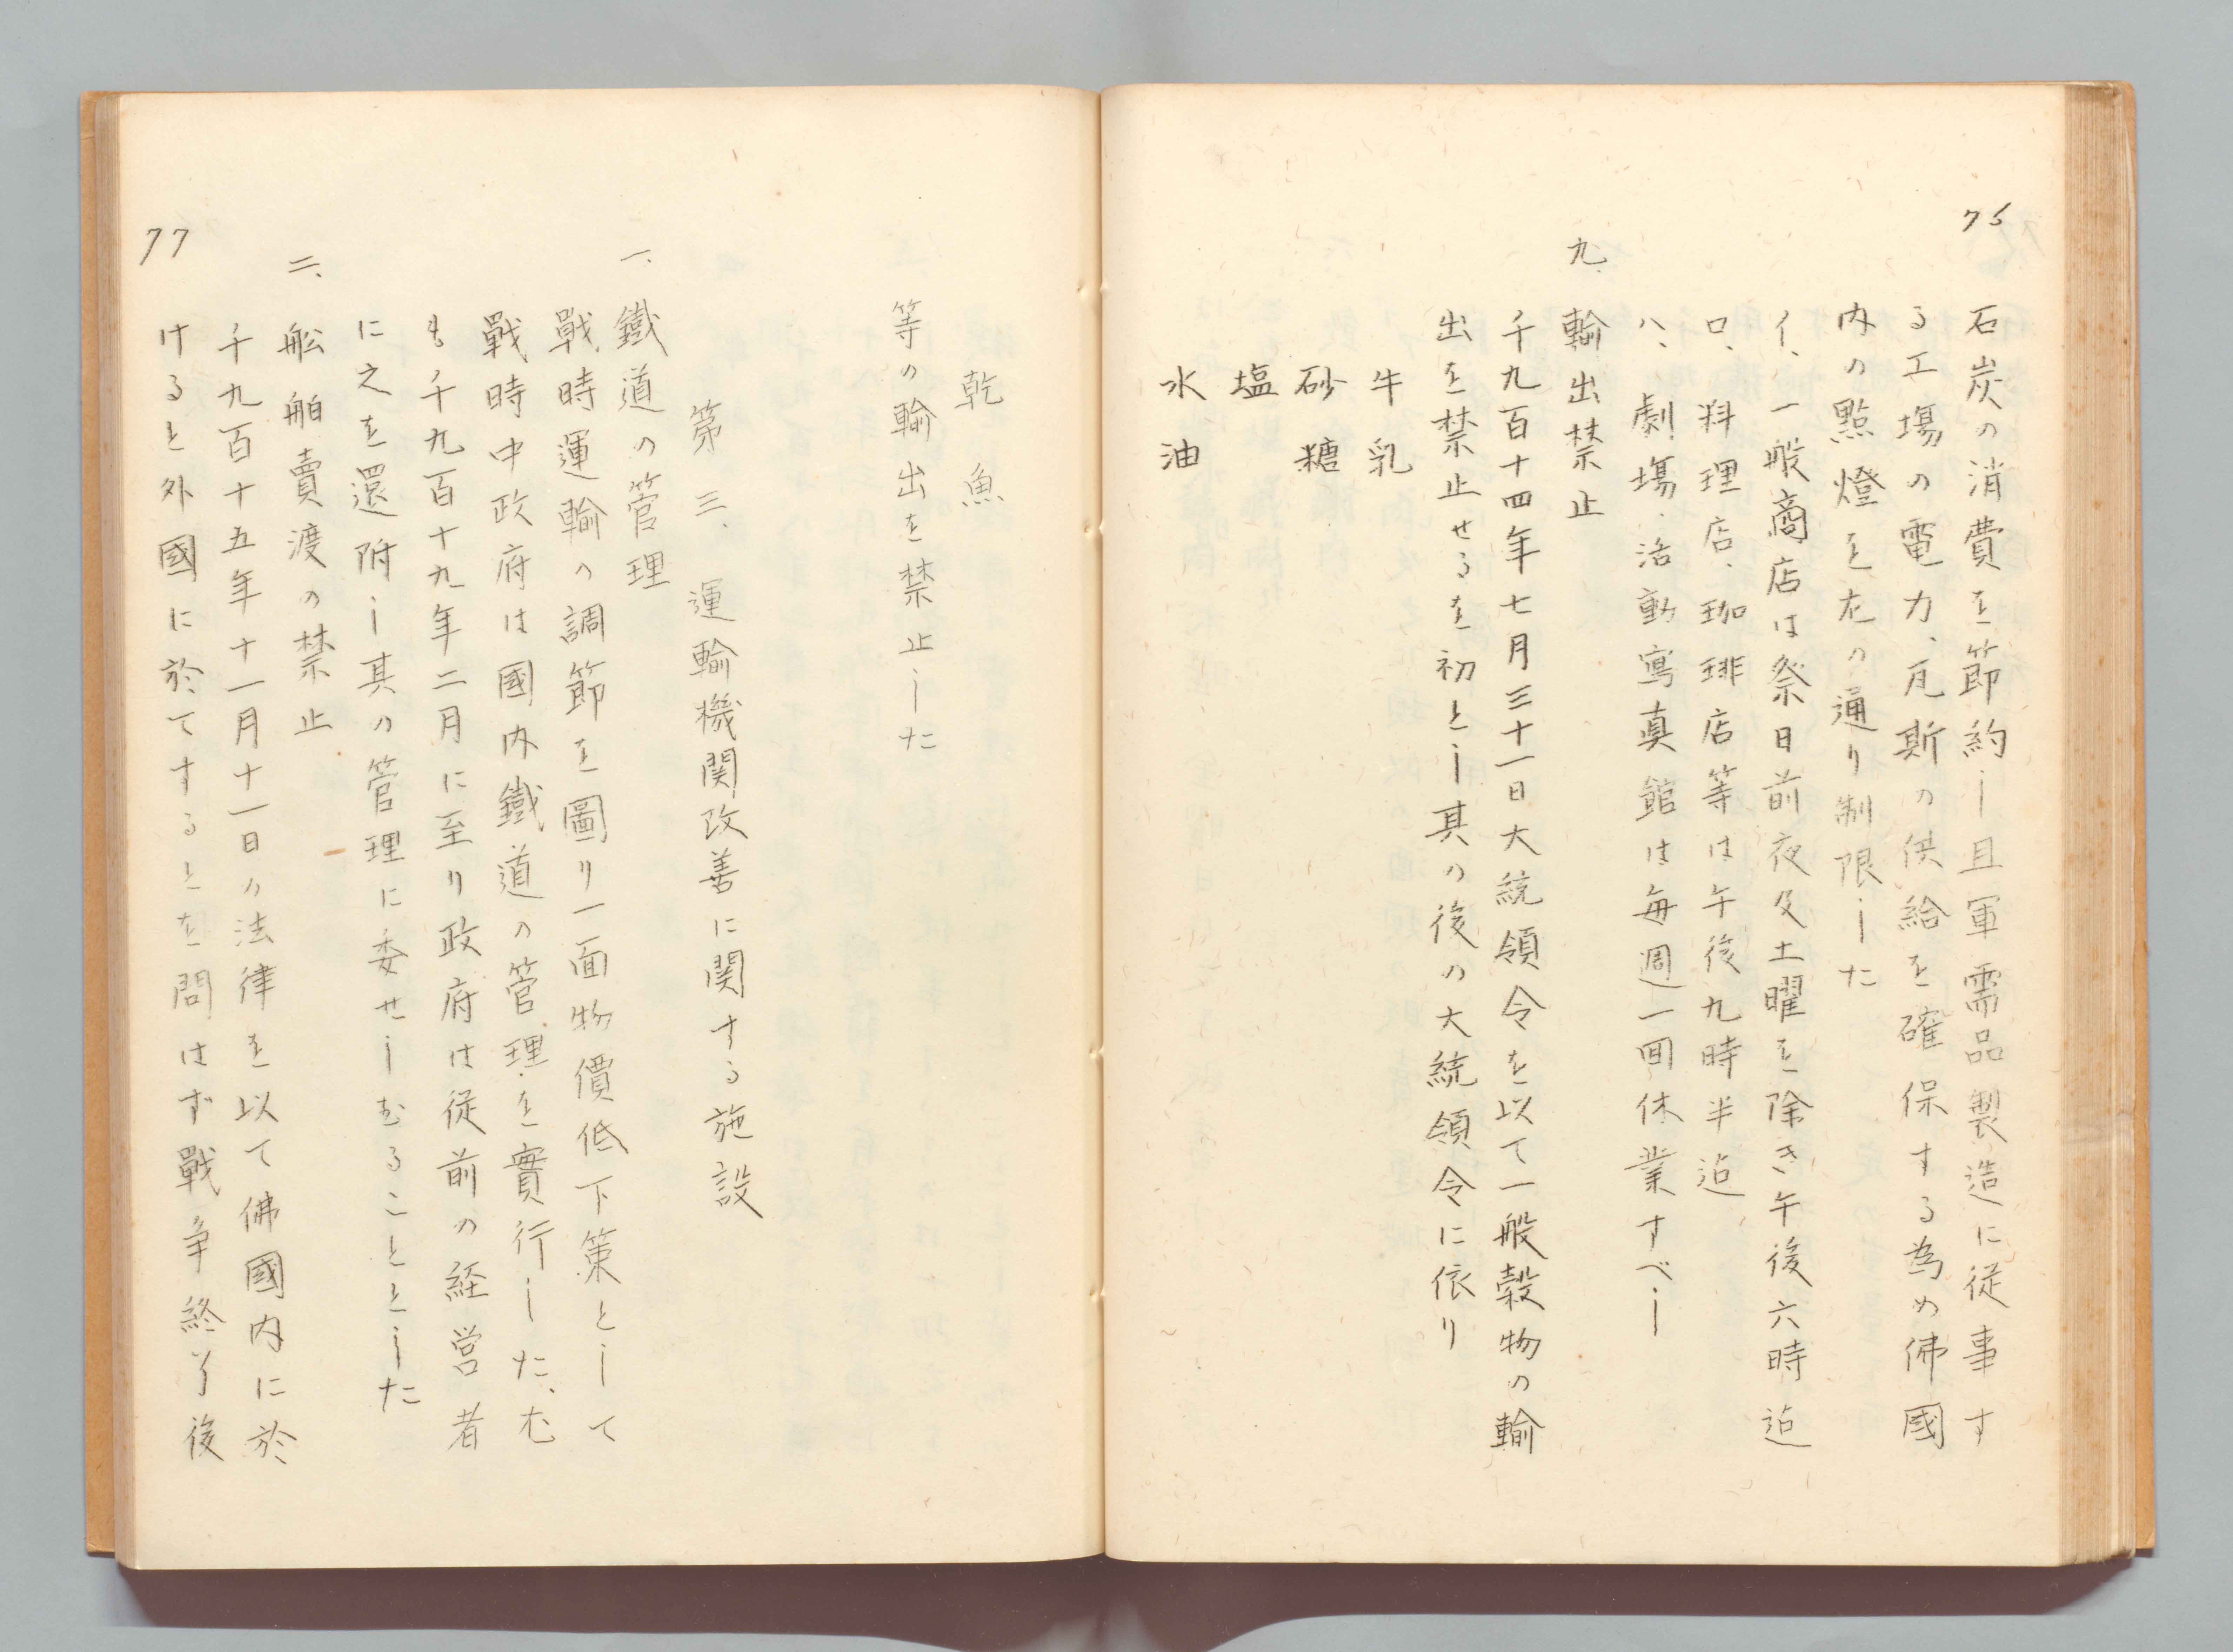 76
石炭の消費を節約し且軍需品製造に従事す
る工場の電力、瓦斯の供給を確保する為め佛國
内の點燈を左の通り制限した
イ、一般商店は祭日前夜及土曜を除き午後六時迠
ロ、料理店、珈琲店等は午後九時半迠
ハ、劇場、活動寫真館は毎週一回休業すべし
九、輸出禁止
千九百十四年七月三十一日大統領令を以て一般穀物の輸
出を禁止せるを初とし其の後の大統領令に依り
牛乳
砂糖
塩
水油
乾魚
等の輸出を禁止した
第三、運輸機関改善に関する施設
一、鐵道の管理
戰時運輸の調節を圖り一面物價低下策として
戰時中政府は國内鐵道の管理を實行した、尤
も千九百十九年二月に至り政府は従前の経営者
に之を還附し其の管理に委せしむることとした
二、舩舶賣渡の禁止
千九百十五年十一月十一日の法律を以て佛國内に於
けると外國に於てするとを問はず戰争終了後
77